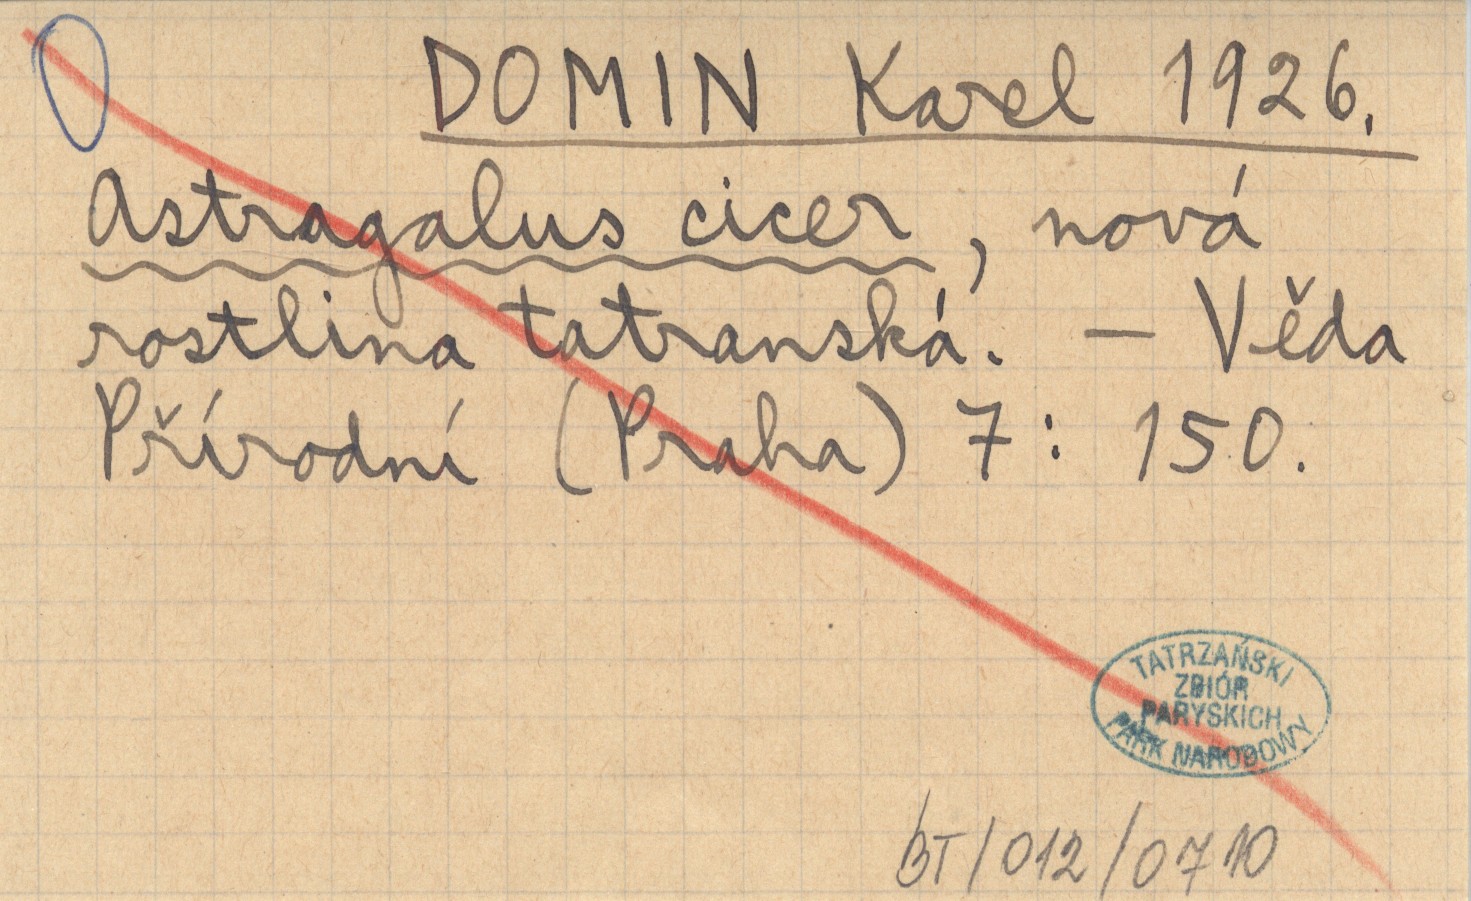 DOMIN Karel 1926.
Astragalus cicer, nová
rostlina tatranská. — Věda
Přírodní (Praha) 7: 150.
TATRZAŃSKI
ZBIÓR
PARYSKICH
PARK NARODOWY
BT/012/0710